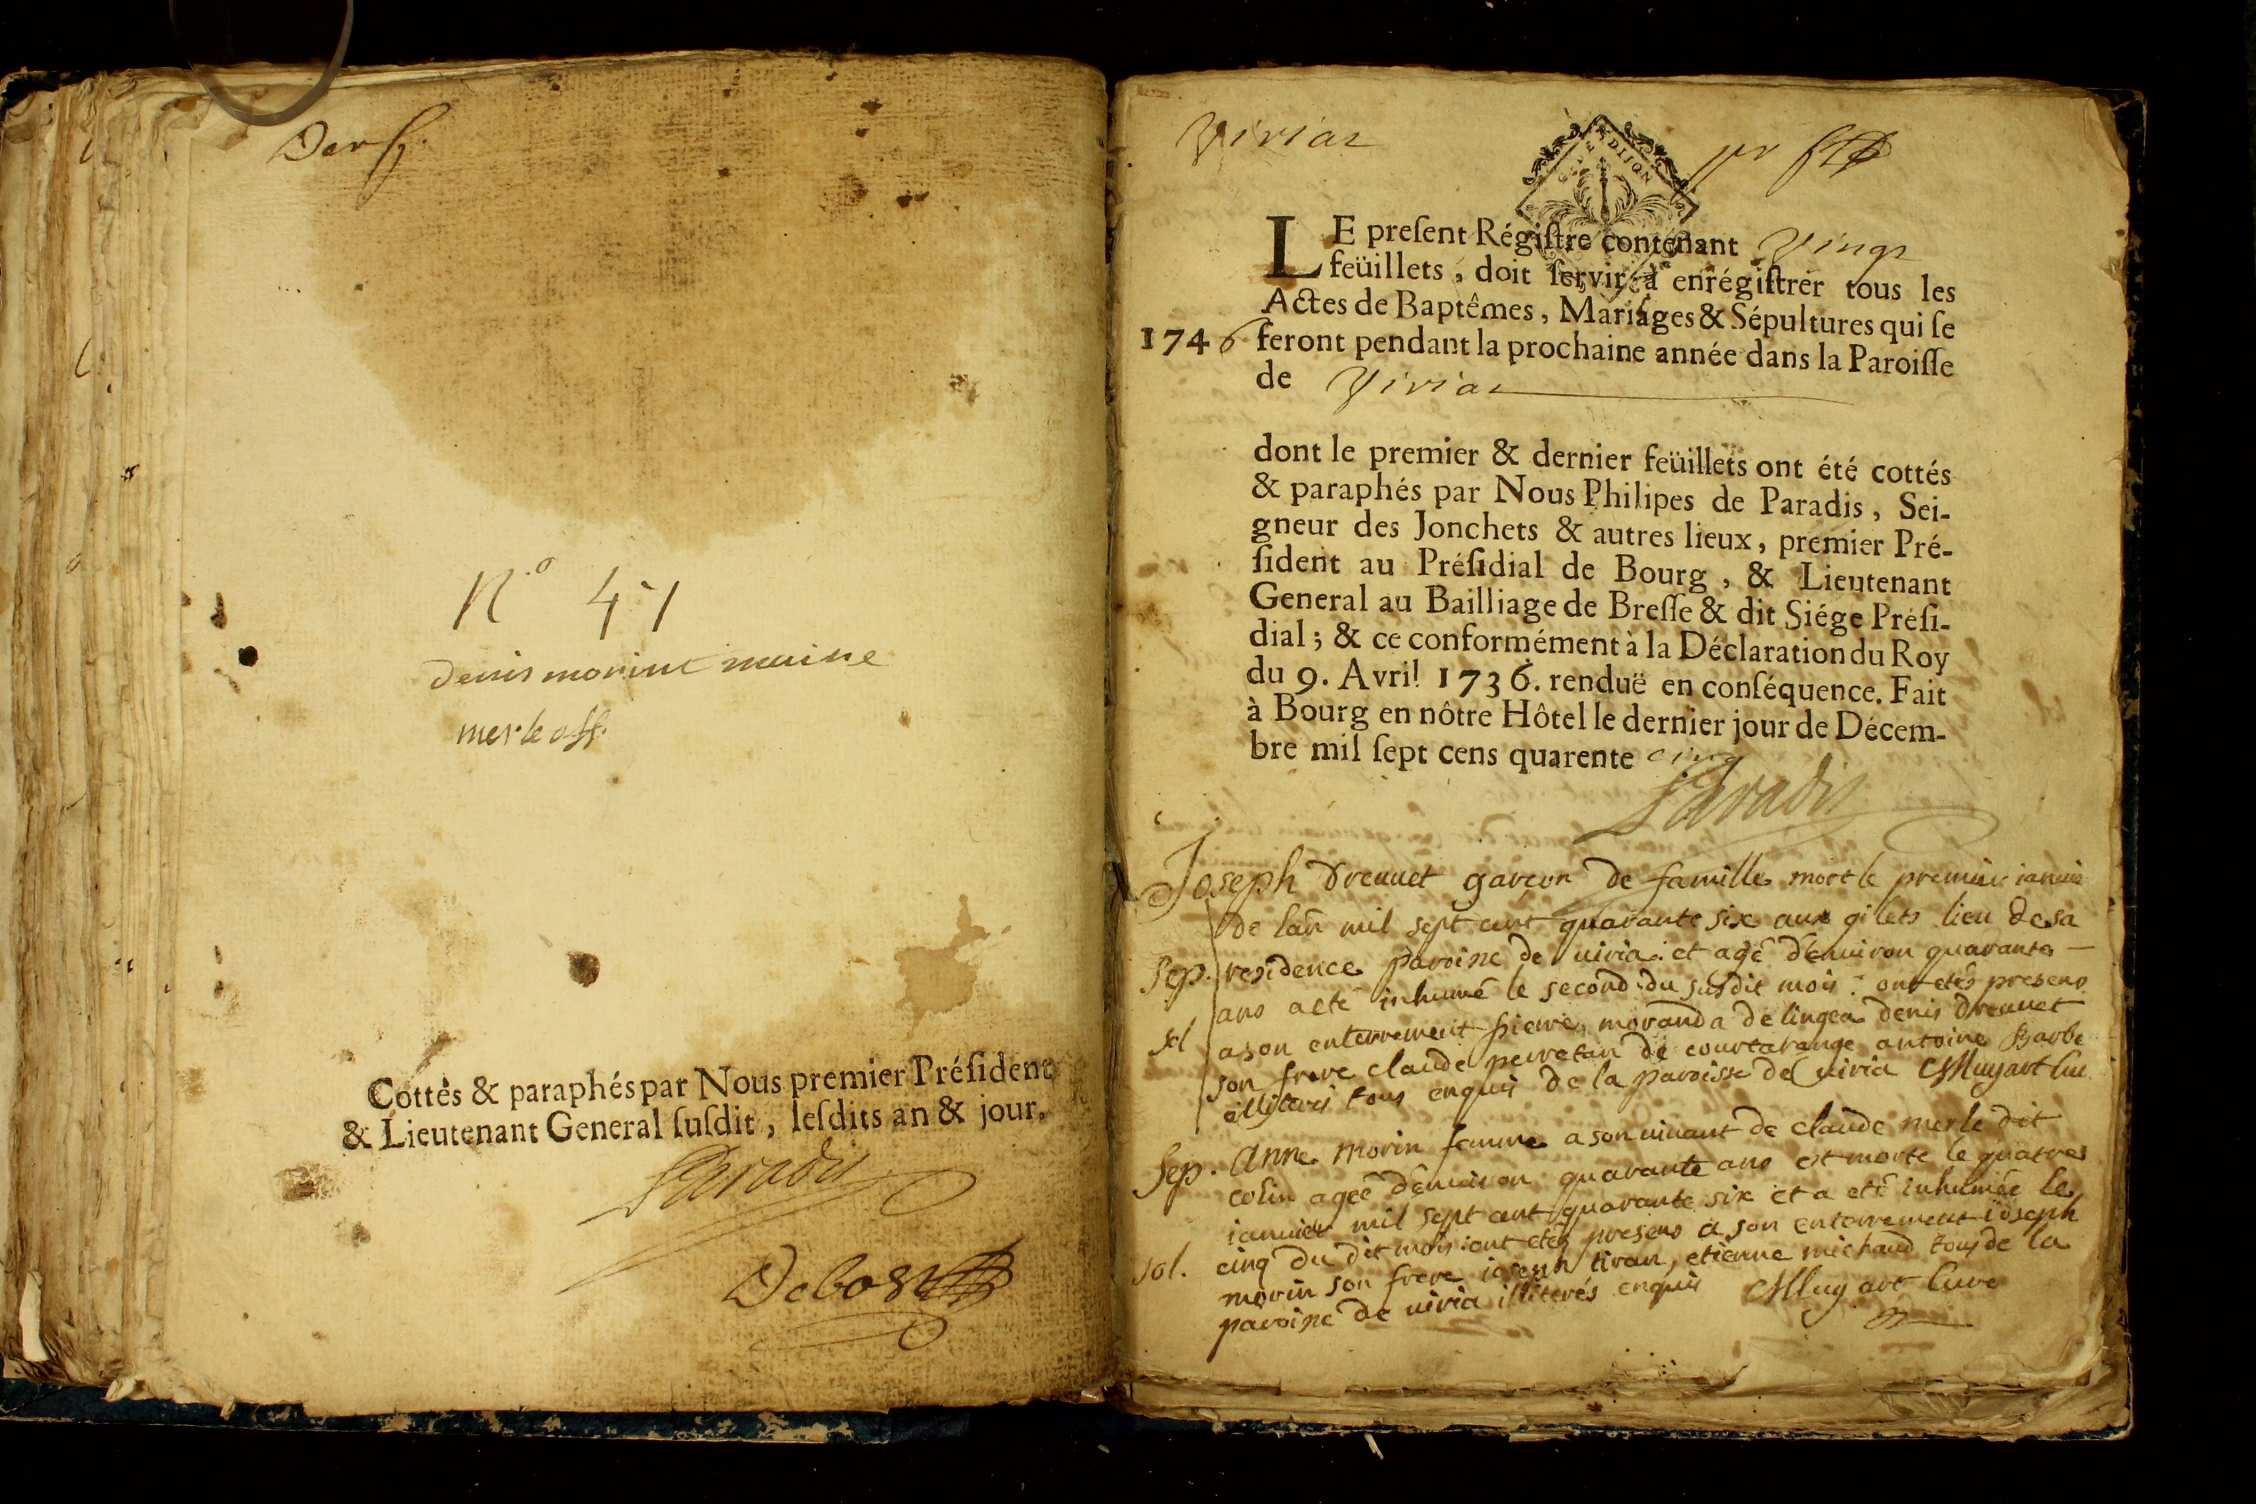 Der f.
N.º 41
denis morin maire
merle off.
Cottés & paraphés par Nous premier Préſident
& Lieutenant General ſuſdit, leſdits an & jour.
Paradis
Debost
Viriat
GEN DIJON
LE preſent Régiſtre contenant Vingt
feüillets, doit ſervir à enrégiſtrer tous les
Actes de Baptêmes, Mariages & Sépultures qui ſe
1746 feront pendant la prochaine année dans la Paroiſſe
de Viriat
dont le premier & dernier feüillets ont été cottés
& paraphés par Nous Philipes de Paradis, Sei-
gneur des Jonchets & autres lieux, premier Pré-
ſident au Préſidial de Bourg, & Lieutenant
General au Bailliage de Breſſe & dit Siége Préſi-
dial; & ce conformément à la Déclaration du Roy
du 9. Avril 1736. renduë en conſéquence. Fait
à Bourg en nôtre Hôtel le dernier jour de Décem-
bre mil ſept cens quarente cinq
Paradis
Joseph Dreuuet garçon de famille mort le premier ianuier
de lan mil sept cent quarante six aux gilets lieu de sa
Sep. residence paroisse de uiria et agé d'enuiron quarante
ans a eté inhumé le second du susdit mois ont etés presens
a son enterrement pierre moranda de lingea denis Dreuuet
son frere claude perretan de courtarange antoine Barbe
illiterés tous enquis de la paroisse de uiria CMuyart Cure
Sep. Anne morin femme a son uiuant de claude merle dit
colin ageé d'enuiron quarante ans est morte le quatres
ianuier mil sept cent quarante six et a eté inhumée le
sol. cinq du dit mois ont etés presens a son enterrement ioseph
morin son frere ioseph tiran, etienne michaud tous de la
paroisse de uiria illiterés enquis CMuyart Cure